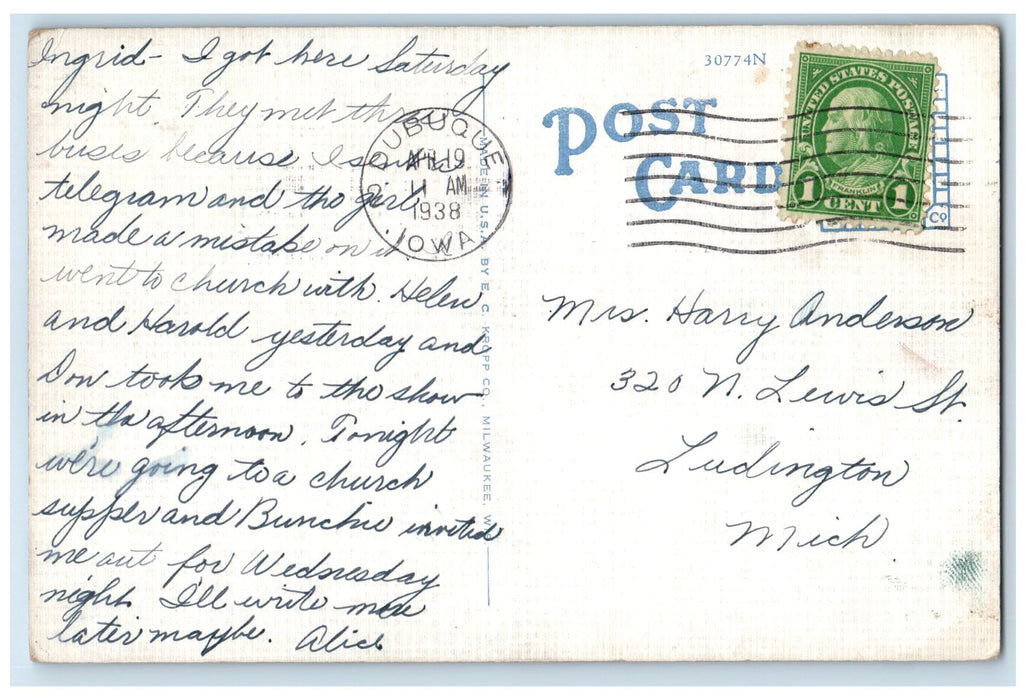 Ingrid - I got here Saturday
night. They met three
buses because I sent a
telegram and the girl
made a mistake on it.
went to church with Helen
and Harold yesterday and
Don took me to the show
in the afternoon. Tonight
we're going to a church
supper and Bunchie invited
me out for Wednesday
night. I'll write more
later maybe. Alice
DUBUQUE
APR 19
11 AM
1938
IOWA
MADE IN U.S.A. BY E. C. KROPP CO., MILWAUKEE, W
30774N
POST
CARD
UNITED STATES POSTAGE
FRANKLIN
1 CENT 1
CO
Mrs. Harry Anderson
320 N. Lewis St.
Ludington
Mich